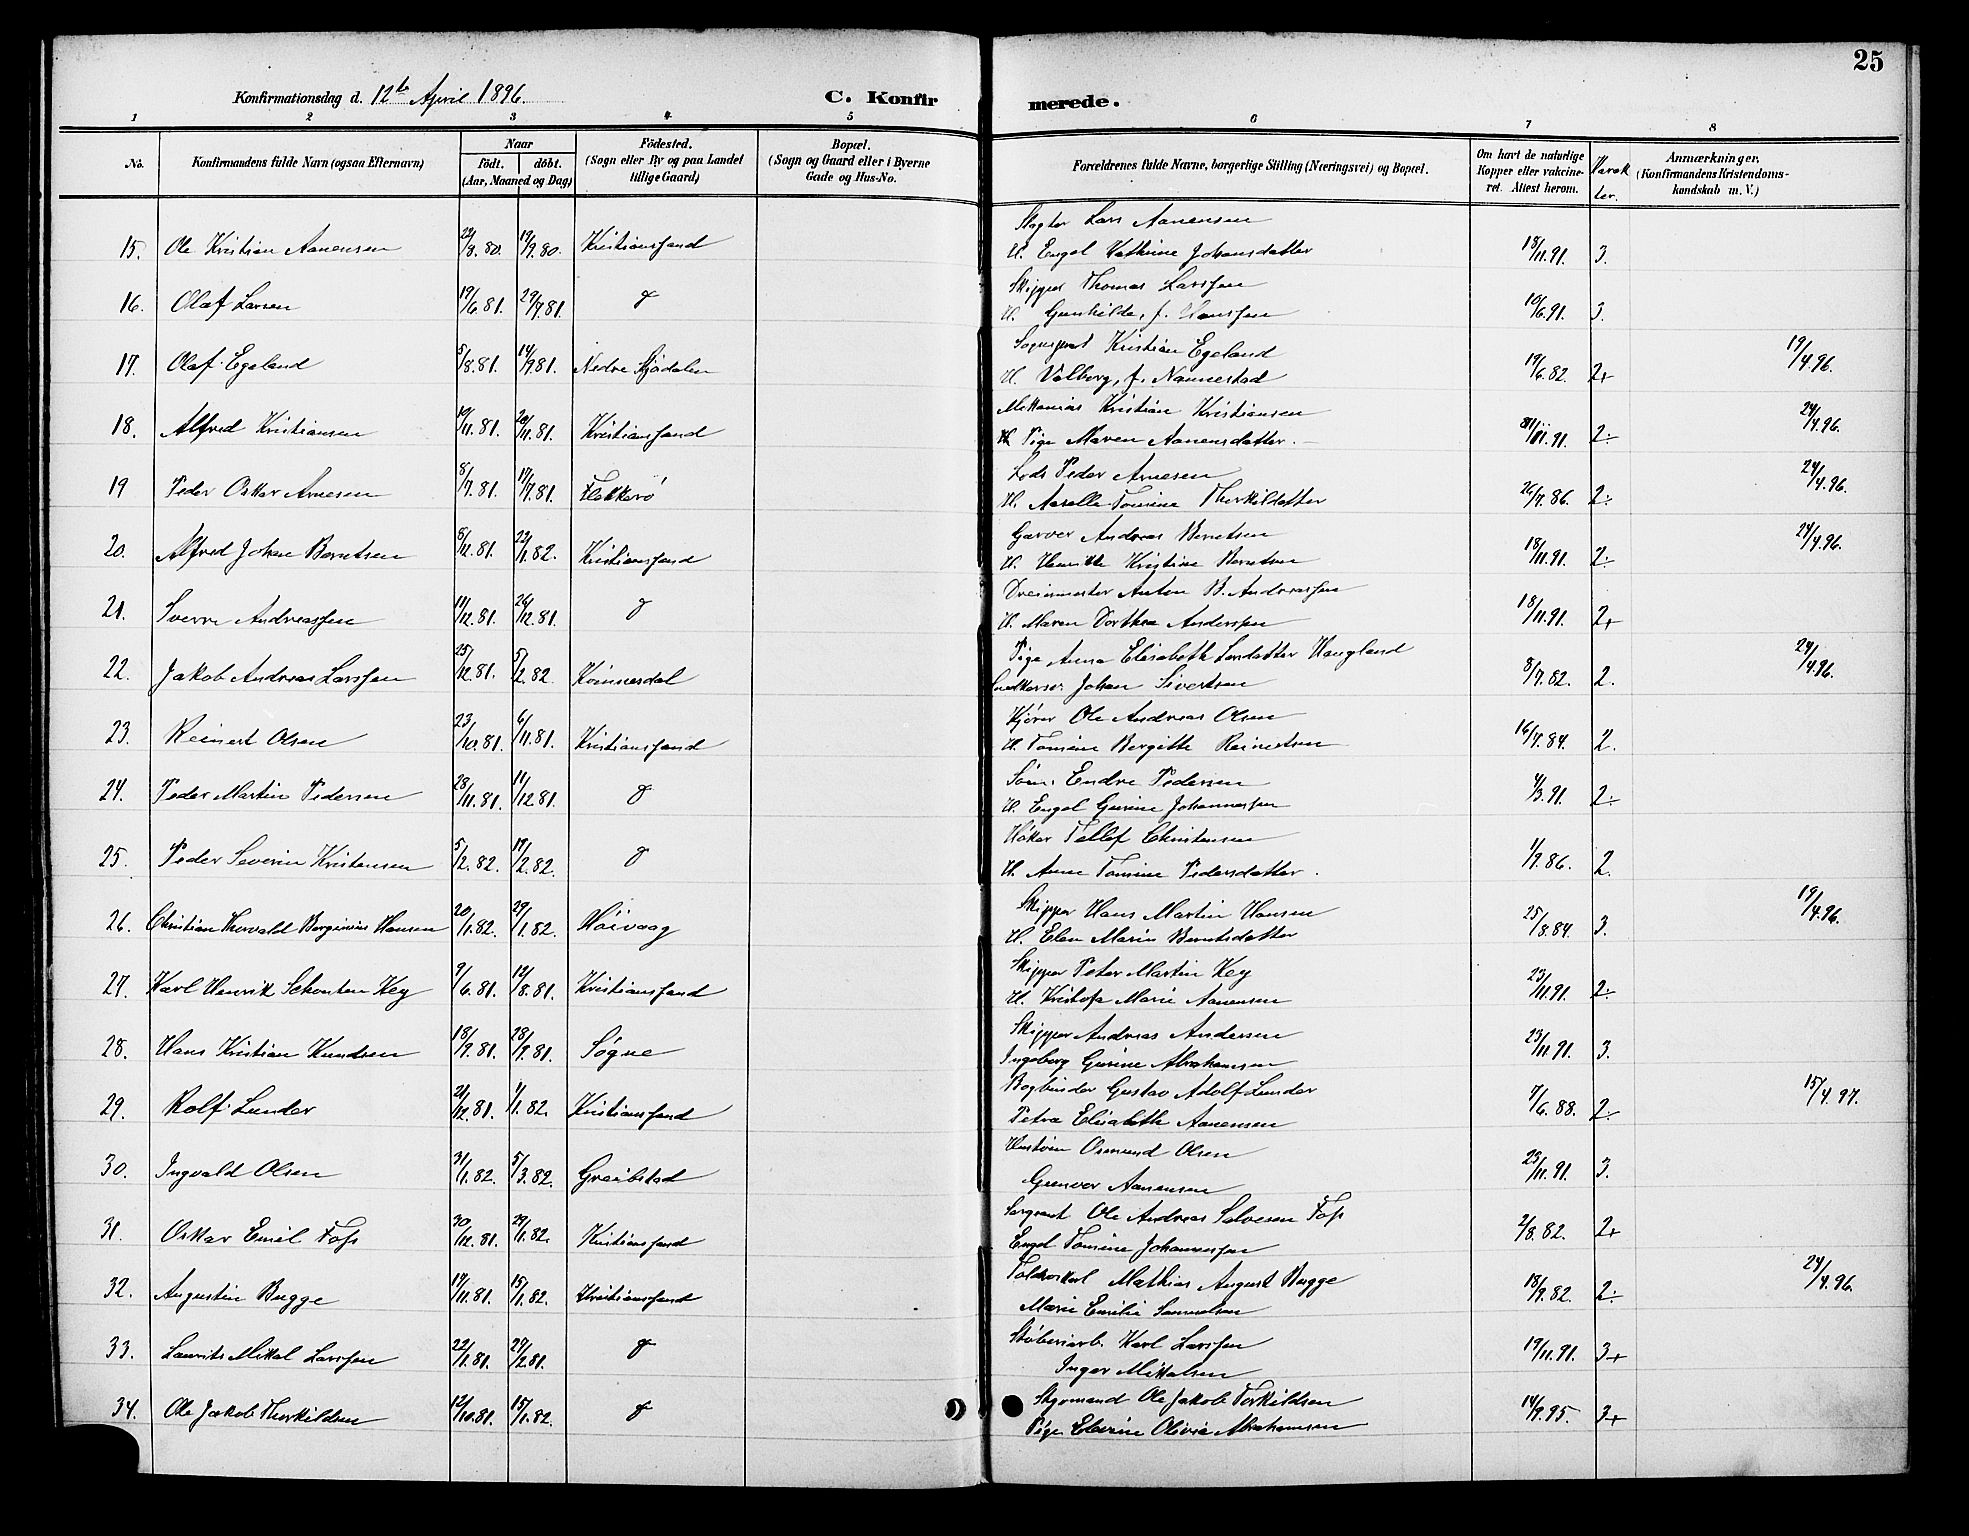 25
Konfirmationsdag d. 12te April 1896.
C. Konfirmerede.
1 2 3 4 5 6 7 8
No. Konfirmandens fulde Navn (ogsaa Efternavn) Naar født. døbt. (Aar, Maaned og Dag) Födested. (Sogn eller By og paa Landet tillige Gaard) Bopæl. (Sogn og Gaard eller i Byerne Gade og Hus-No. Forældrenes fulde Navne, borgerlige Stilling (Næringsvei) og Bopæl. Om havt de naturlige Kopper eller vakcineret. Attest herom. Karakter. Anmærkninger, (Konfirmandens Kristendomskundskab m. V.)
15. Ole Kristian Aanensen 22/8.80. 19/9.80. Kristianssand Lars Aanensen
H. Engel Kathrine Johansdatter 18/11.91. 3.
16. Olaf Larsen 19/6.81. 29/9.81. d Skipper Thomas Larssen
H. Gunhilde, f. Hanssen 10/6.91. 3.
17. Olaf Egeland 5/8.81. 14/9.81. Nedre Stjødalen Sogneprest Kristian Egeland
H. Valborg, f. Nannestad 19/6.82. 2+ 19/4.96.
18. Alfred Kristiansen 19/11.81. 20/11.81. Kristianssand Mekanius Kristian Kristiansen
Pige Maren Aanensdatter. 2÷ 24/4.96.
19 Peder Oskar Arnesen 8/7.81. 17/7.81. Flekkerö Lods Peder Arnesen
H. Aaselle Tomine Thorkildsdatter 26/7.86. 2÷ 24/4.96.
20. Alfred Johan Berntsen 8/12.81. 22/1.82. Kristianssand Garver Andreas Berntsen
H. Henrikke Kristine Berntsen 18/11.91. 2÷ 24/4.96.
21. Sverre Andreassen 11/12.81. 26/12.81. d Dreiermester Anton B. Andreassen
H. Maren Dorthea Anderssen 18/11.91. 2+
22. Jakob Andreas Larssen 25/12.81. 5/2.82. Pige Anna Elisabeth Larsdatter Haugland
Snedkersv. Johan Sivertsen 8/7.82. 2. 24/4.96.
23. Reinert Olsen 23/10.81. 6/11.81. Kristianssand Kjører Ole Andreas Olsen
H. Tomine Bergitte Reinertsen 16/7.84. 2.
24. Peder Martin Pedersen 28/11.81. 11/12.81. d Søm. Endre Pedersen
H. Engel Gurine Johannessen 4/3.91. 2÷
25. Peder Severin Kristensen 5/2.82. 19/2.82. d Høker Tellef Christensen
H. Anne Tomine Pedersdatter. 1/9.86. 2.
26. Christian Thorvald Berginius Hansen 20/1.82. 29/1.82. Höivaag Skipper Hans Martin Hansen
H. Elen Marie Berntsdatter 25/8.84. 3. 19/4.96.
27. Karl Henrik Schouten Key 9/6.81. 12/8.81. Kristianssand Skipper Peter Martin Key
H. Kristofa Marie Aanensen 23/11.91. 2÷
28. Hans Kristian Knudsen 18/9.81. 28/9.81. Søgne Skipper Andreas Andersen
Ingeborg Gurine Abrahamsen 23/11.91. 3.
29. Rolf Lunder 21/12.81. 1/1.82. Kristianssand Bogbinder Gustav Adolf Lunder
Petra Elisabeth Aanensen 7/6.88. 2÷ 15/4.97.
30. Ingvald Olsen 31/1.82. 5/3.82. Greibstad Osmund Olsen
Gunvor Aanensen 23/11.91. 3.
31. Oskar Emil Foss 30/12.81. 29/1.82. Kristianssand Sergeant Ole Andreas Salvesen Foss
Engel Tomine Johannessen 2/8.82. 2+
32. Augustin Bugge 17/11.81. 15/1.82. Kristianssand Mathias August Bugge
Marie Emilie Samuelsen 18/9.82. 2÷ 24/4.96.
33. Laurits Mikal Larssen 22/1.81. 27/2.81. d Støberiarb. Karl Larssen
Inger Mikalsen 19/11.91. 3+
34. Ole Jakob Thorkildsen 12/10.81. 15/1.82. d Styrmand Ole Jakob Torkildsen
Pige Elevine Olivia Abrahamsen 14/9.95. 3+